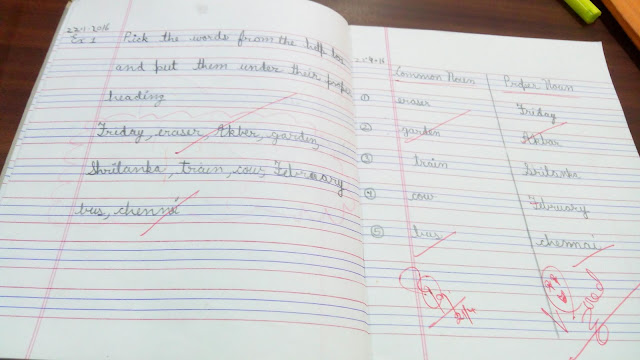 Ex 1 Pick the words from the help box
and put them under their proper
heading
Friday, eraser, Akber, garden,
Shrilanka, train, cow, Februray
bus, chennai
Common Noun Proper Noun
① eraser Friday
② garden Akbar
③ train Srilanka
④ cow February
⑤ bus chennai